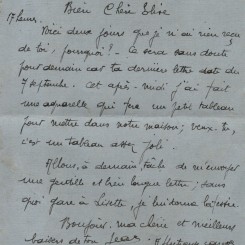 Bien Chère Elise
17 heures.
Voici deux jours que je n'ai rien reçu
de toi, pourquoi? - Ce sera sans doute
pour demain car ta dernière lettre date du
7 septembre. Cet après-midi j'ai fait
une aquarelle qui fera un petit tableau
pour mettre dans notre maison; veux-tu,
c'est un tableau assez joli.
Allons, à demain tâche de m'envoyer
une gentille et bien longue lettre; sans
quoi gare à Lisette, je lui donne la fessée.
Bonjour. ma chérie et meilleurs
baisers de ton Jean.